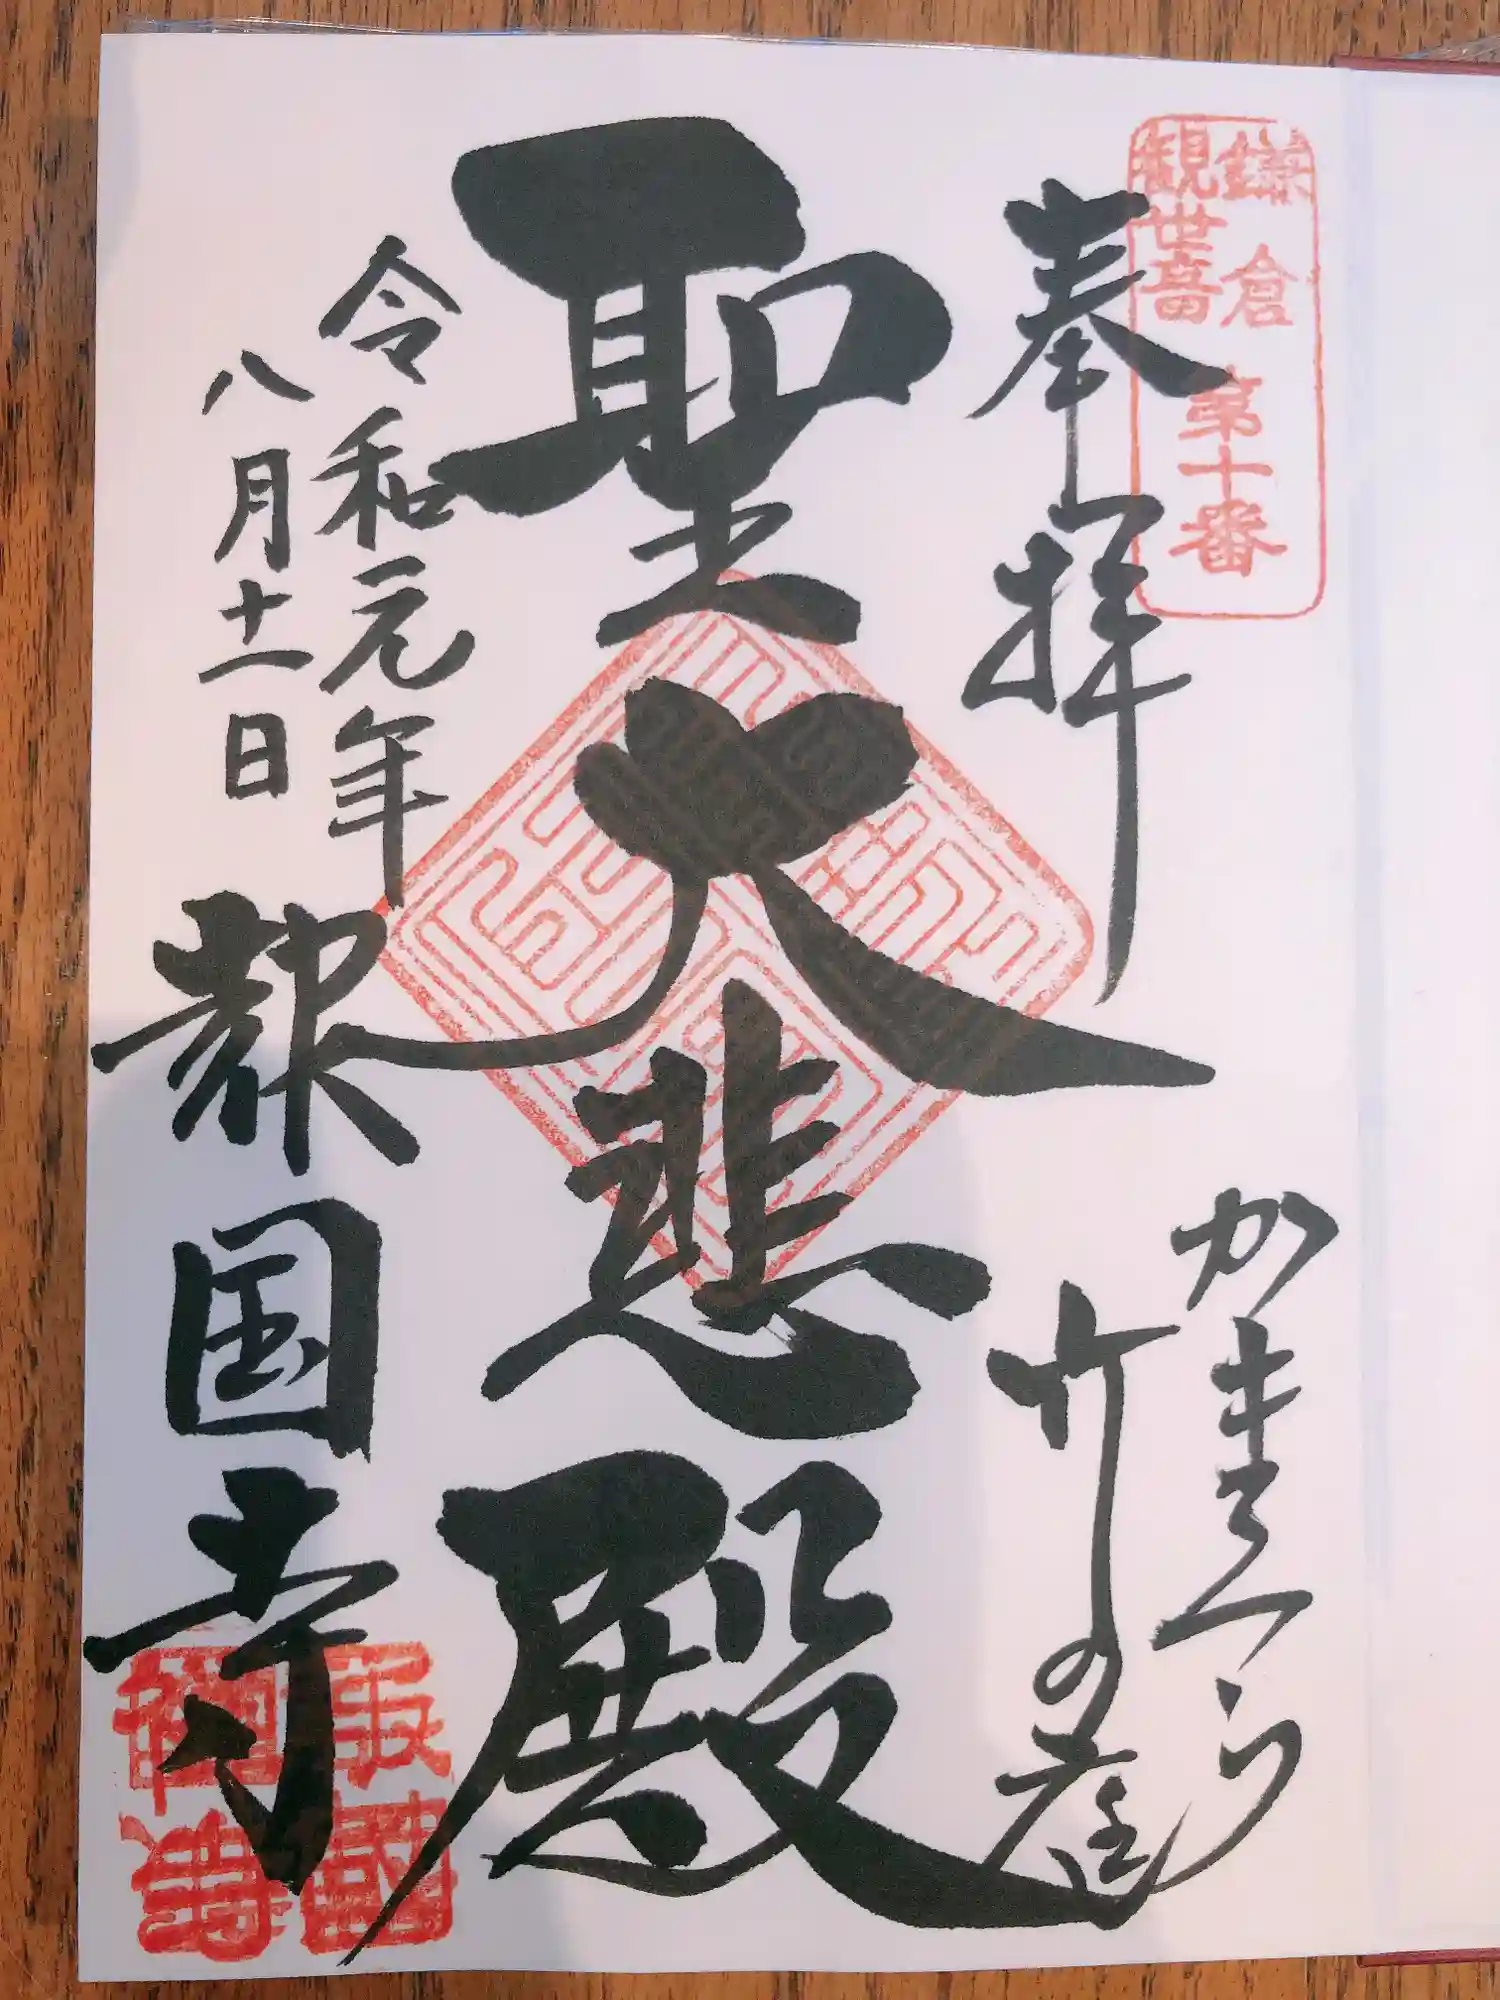 鎌倉
観世音
第十番
奉拝
かまくら
竹の庭
聖大悲殿
令和元年
八月十一日
報国寺
報國禅寺